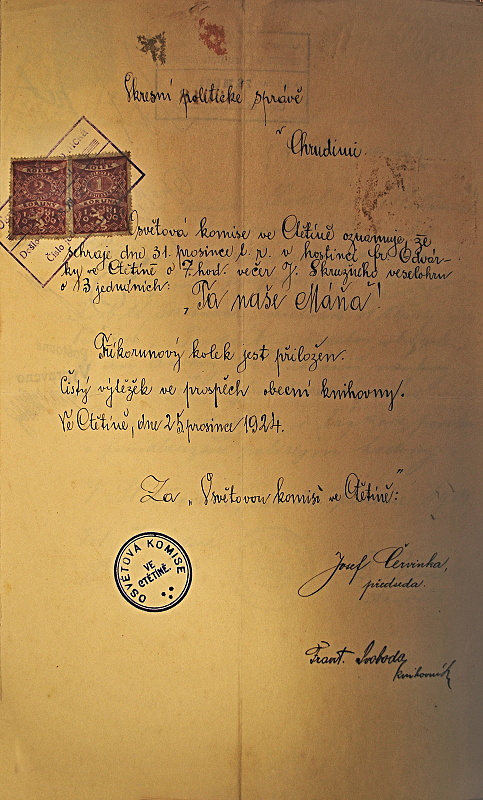 Okresní politické správě
v Chrudimi.
KOLEK
2
KORUNY
KOLEK
1
KORUNA
Osvětová komise ve Ctětíně oznamuje, že
sehraje dne 31. prosince t. r. v hostinci Fr. Odvár-
ky ve Ctětíně o 7. hod. večer J. Skružného veselohru
o 3 jednáních: „Ta naše Máňa"!
Tříkorunový kolek jest přiložen.
Čistý výtěžek ve prospěch obecní knihovny.
Ve Ctětíně, dne 25 prosince 1924.
Za „Osvětovou komisi ve Ctětíně":
OSVĚTOVÁ KOMISE
VE
CTĚTÍNĚ.
Josef Červinka,
předseda.
Frant. Svoboda
knihovník